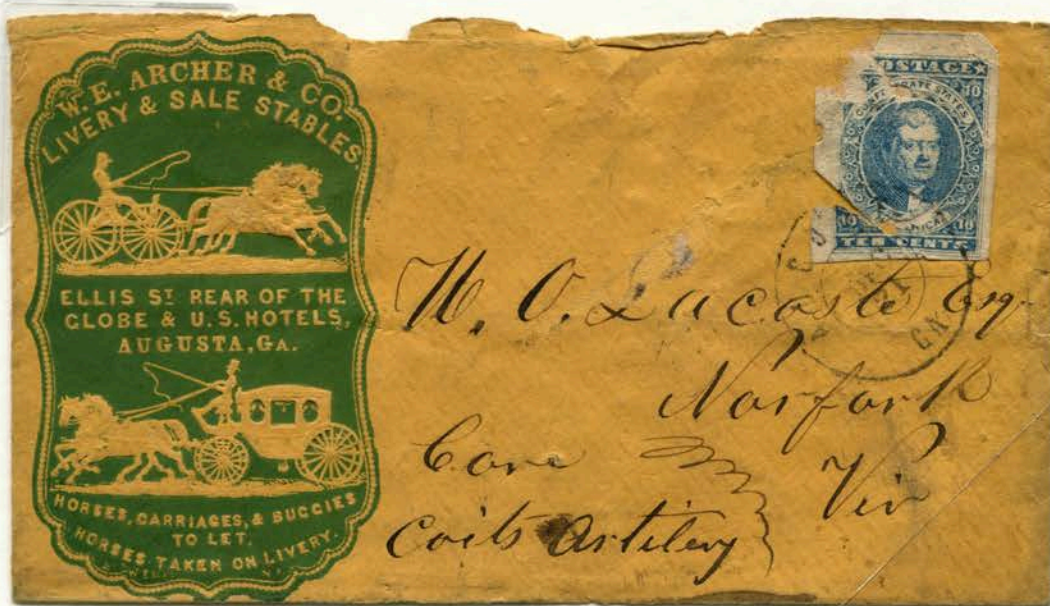 W. E. ARCHER & CO.
LIVERY & SALE STABLES
ELLIS ST REAR OF THE
GLOBE & U.S. HOTELS,
AUGUSTA, GA.
HORSES, CARRIAGES, & BUGGIES
TO LET.
HORSES TAKEN ON LIVERY.
POSTAGE
10 10
CONFEDERATE STATES
10 10
TEN CENTS
GA
W. O. Lacoste Esq
Norfork
Vir
Care
Coits Artilery